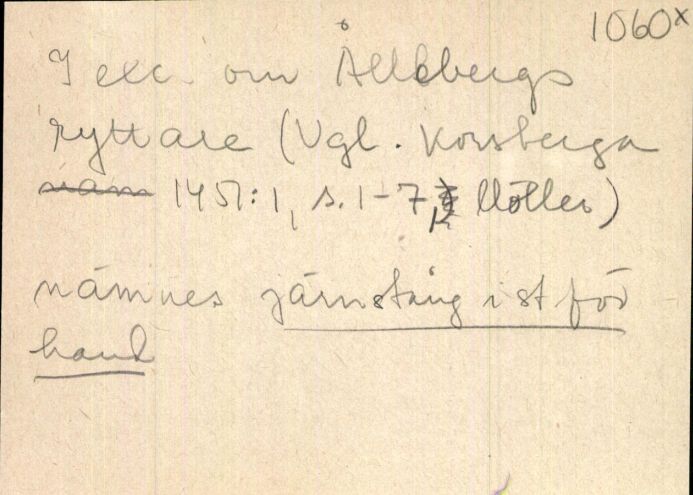 1060x
I exc. om Ållebergs
ryttare (Vgl. Korsberga
nam 1451:1, s. 1-7, Götler)
nämnes järnstång ist för
hand